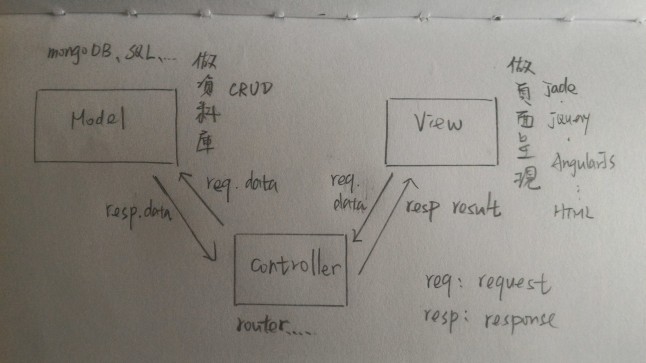 mongoDB、SQL、...
做資料庫
CRUD
Model
做頁面呈現
jade
jQuery
AngularJS
HTML
View
req. data
resp. data
req. data
resp result
controller
router......
req: request
resp: response